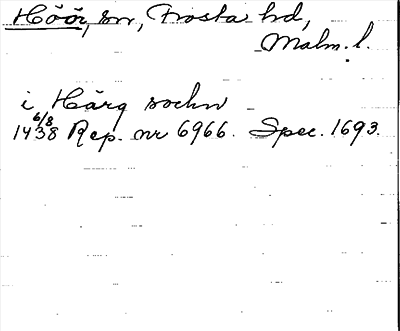 Höör, sn, Frosta hd,
Malm. l.
i Hörg sochn
6/8
1438 Rep. nr 6966. Spec. 1693.